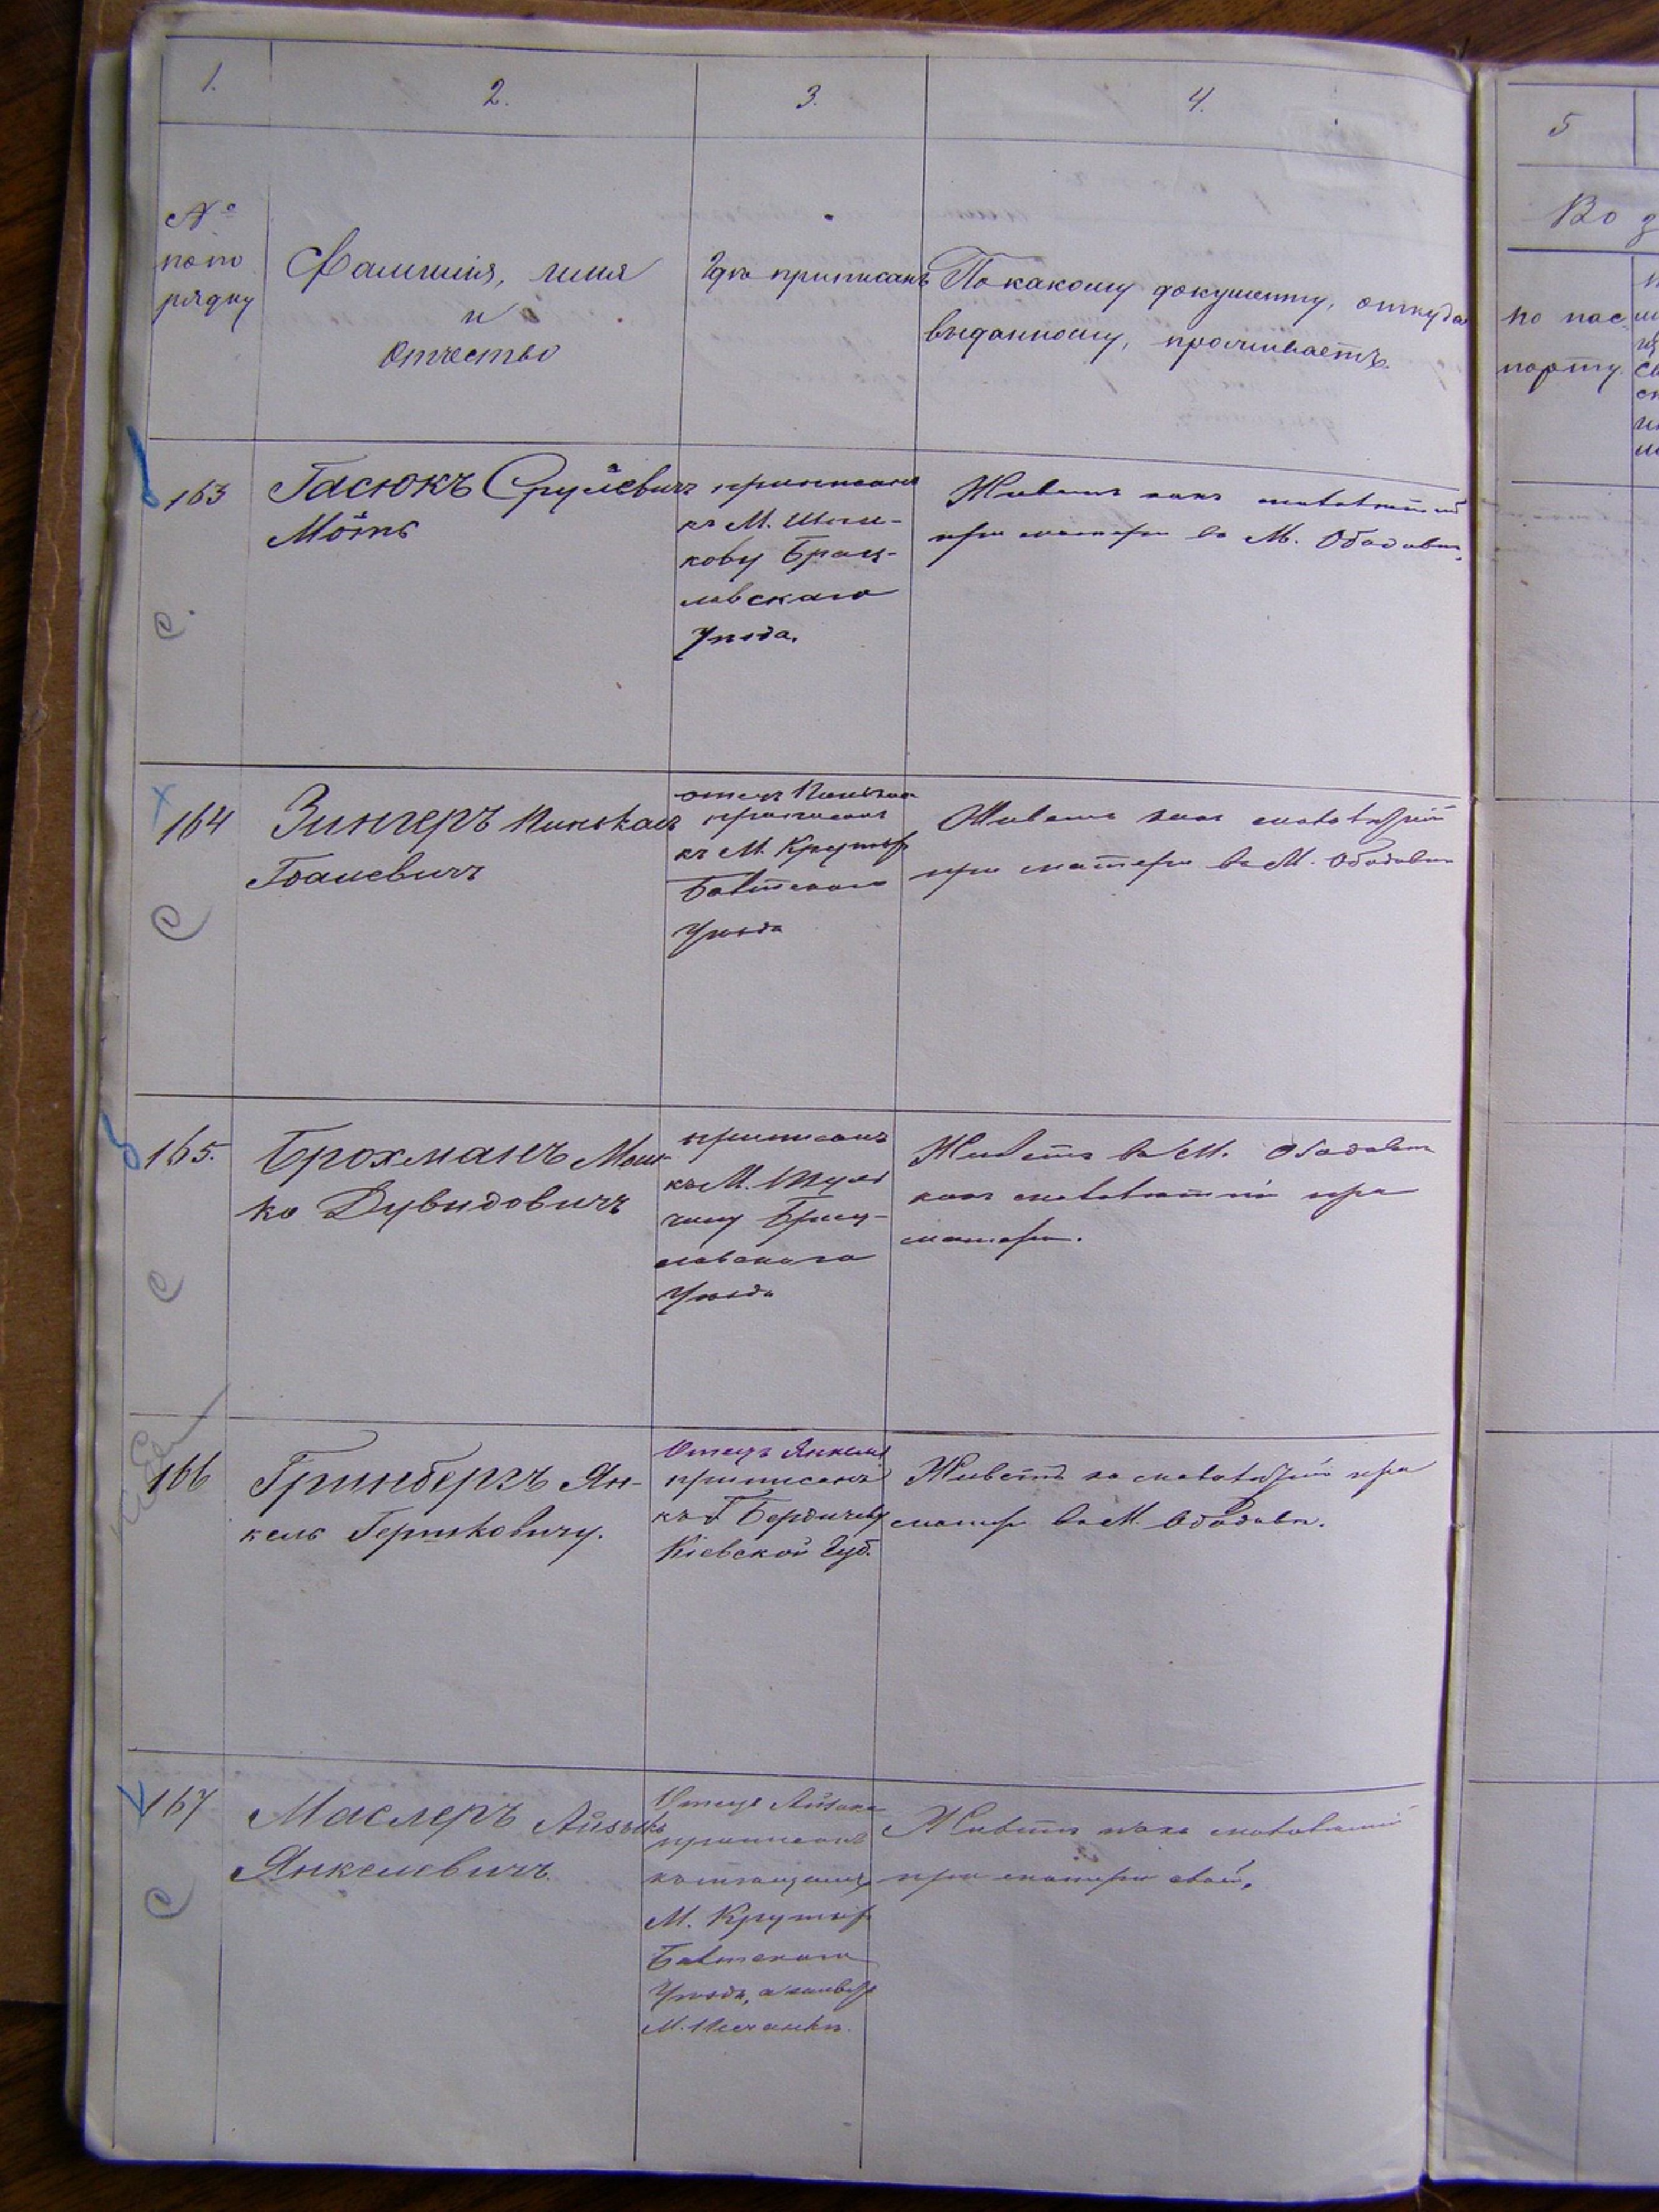 1.
2.
3.
4.
5
№
по по
рядку
Фамилія, имя
и
Отчество
Гдѣ приписанъ
По какому документу, откуда
выданному, проживаетъ.
Во з
по пас
порту.
163
Гасюкъ Срулевичъ
Мотъ
приписанъ
къ М. Шпи-
кову Брац-
лавскаго
Уѣзда.
Живетъ какъ малолѣтній
при матери въ М. Ободовкѣ.
с.
164
Зингеръ Пинхас
отецъ
приписанъ
къ М. Крутыя
Балтскаго
Уѣзда
Живетъ какъ малолѣтній
при матери въ М. Ободовкѣ
с
165.
Брохманъ Мош-
ко Дувидовичъ
приписанъ
къ М. Туль
чину Брац-
лавскаго
Уѣзда
Живетъ въ М. Ободовкѣ
какъ малолѣтній при
матери.
с
166
Гринбергъ Ян-
кель Гершковичу.
Отецъ Янкеля
приписанъ
къ Г Бердичеву
Кіевской Губ.
Живетъ малолѣтній при
матери въ М. Ободовкѣ.
167
Маслеръ Айзикъ
Янкелевичъ.
Отецъ Айзика
приписанъ
къ мѣщанамъ
М. Крутыя
Балтскаго
Уѣзда,
М. Песчанкѣ.
Живетъ какъ малолѣтній
при матери своей.
с